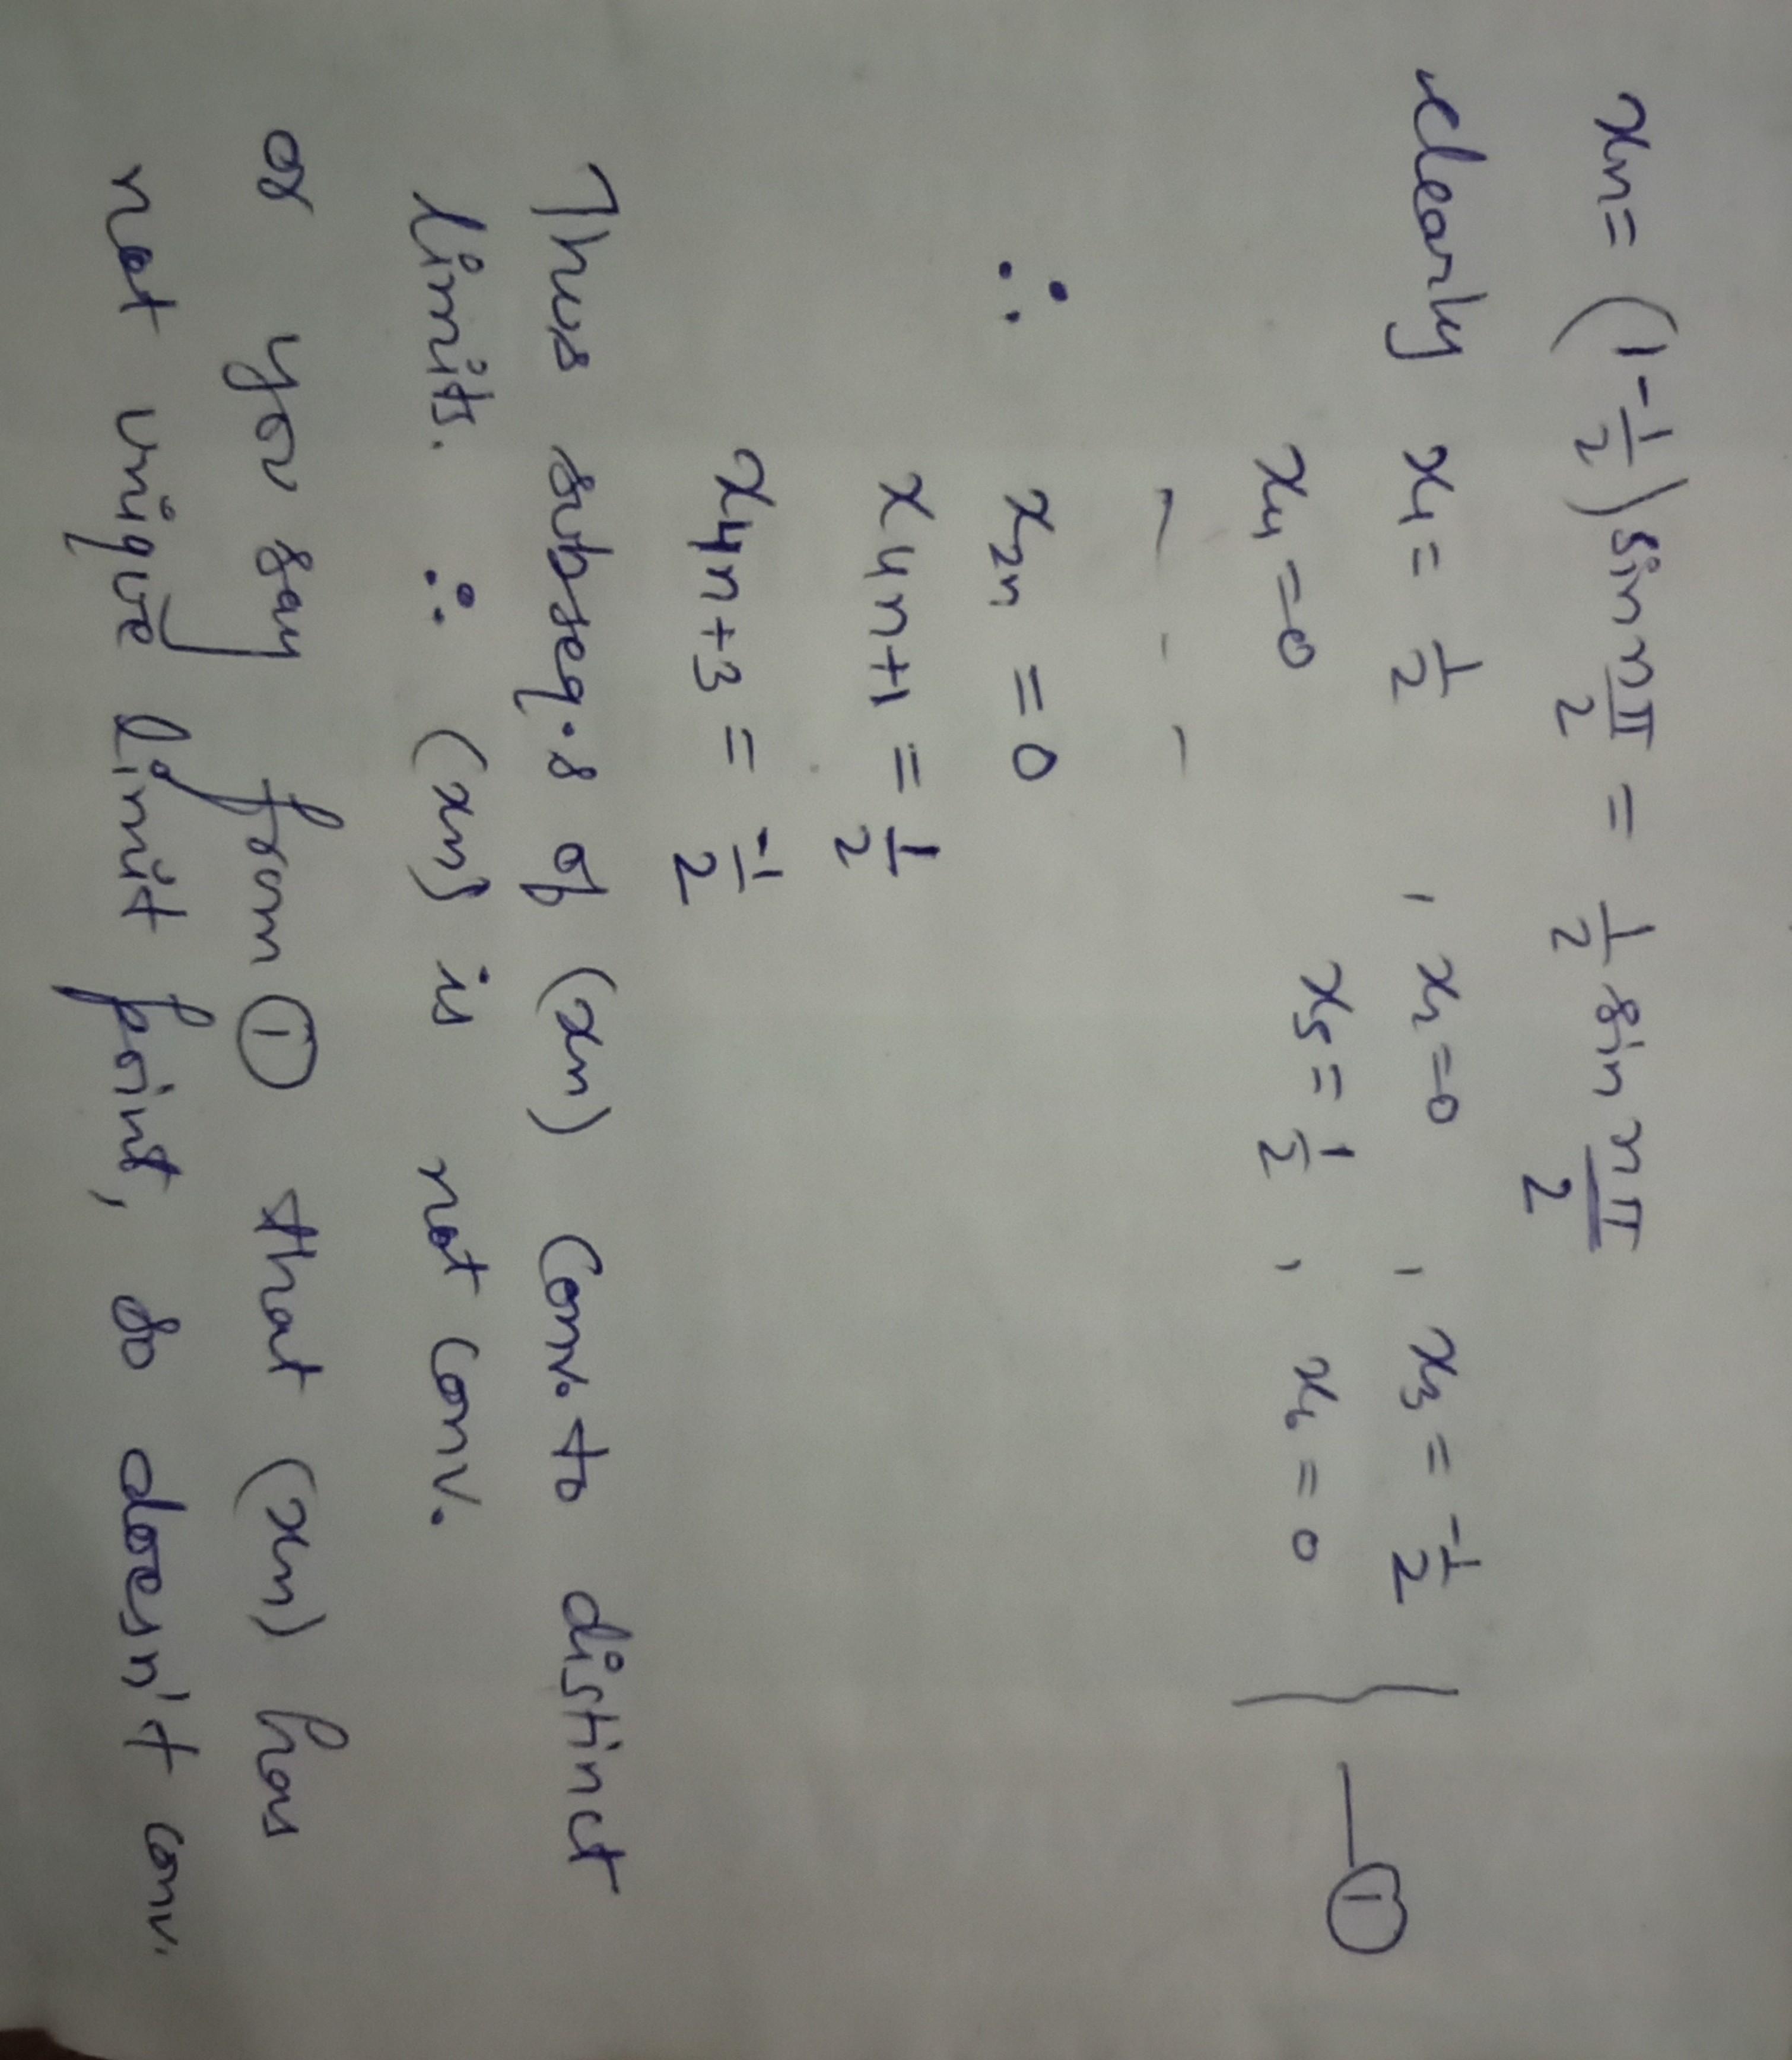 xn = (1 - 1/2) sin nπ/2 = 1/2 sin nπ/2
clearly x1 = 1/2 , x2 = 0 , x3 = -1/2
x4 = 0 x5 = 1/2 , x6 = 0 — ①
∴ x2n = 0
x4n+1 = 1/2
x4n+3 = -1/2
Thus subseq.s of (xn) conv. to distinct
limits. ∴ (xn) is not conv.
or you say from ① that (xn) has
not unique limit point, so doesn't conv.